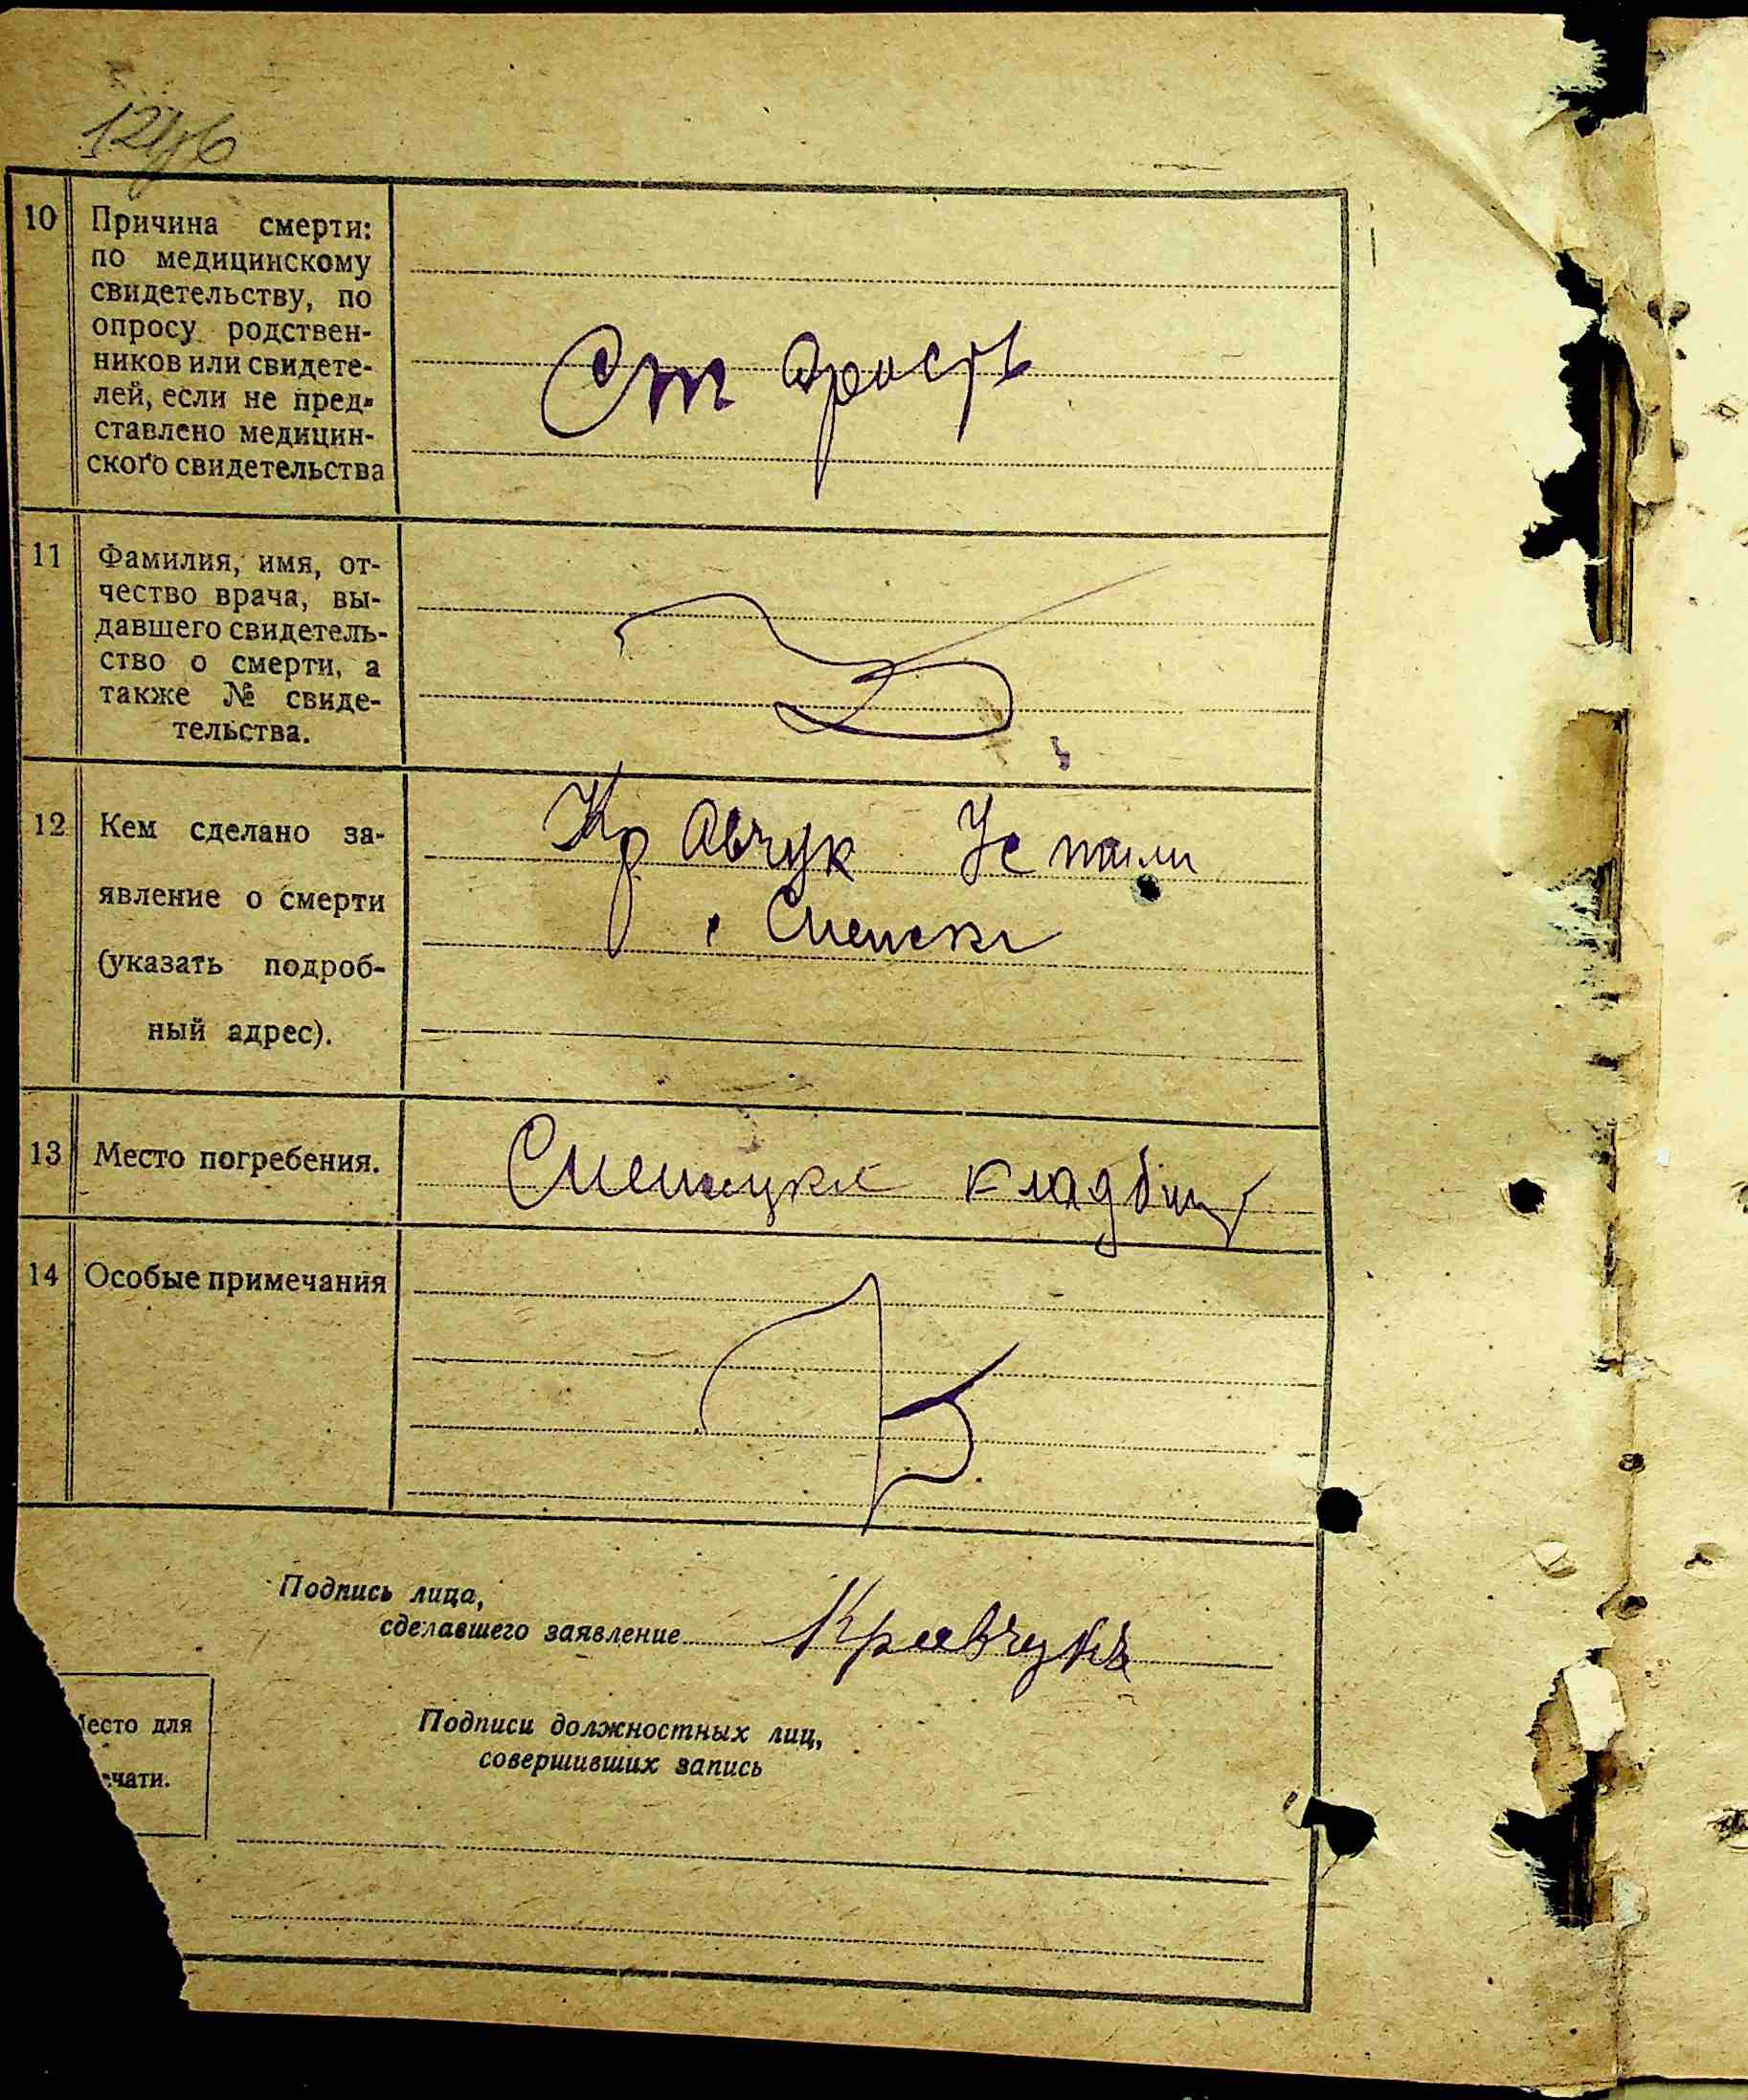 10 Причина смерти:
по медицинскому
свидетельству, по
опросу родствен-
ников или свидете-
лей, если не пред-
ставлено медицин-
ского свидетельства
Старость
11 Фамилия, имя, от-
чество врача, вы-
давшего свидетель-
ство о смерти, а
также № свиде-
тельства.
12 Кем сделано за-
явление о смерти
(указать подроб-
ный адрес).
Кравчук
13 Место погребения.
14 Особые примечания
Подпись лица,
сделавшего заявление Кравчукъ
Место для
печати.
Подписи должностных лиц,
совершивших запись